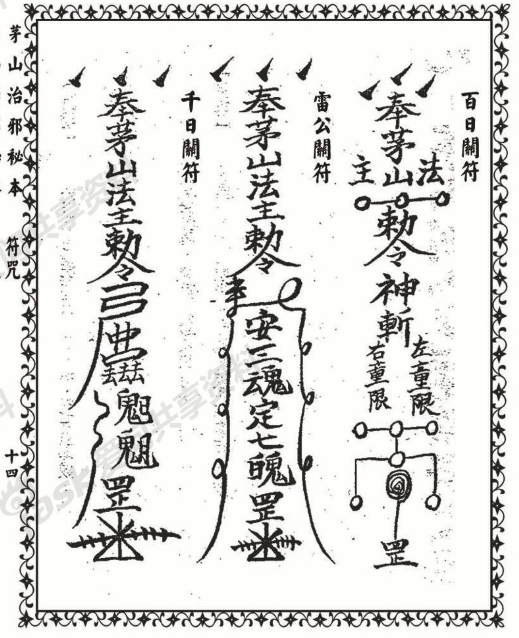 百日關符
奉茅山法主勅令神斬
左童限
右童限
罡
雷公關符
奉茅山法主勅令
安三魂定七魄罡
千日關符
奉茅山法主勅令
罡
茅山治邪秘本
符咒
十四